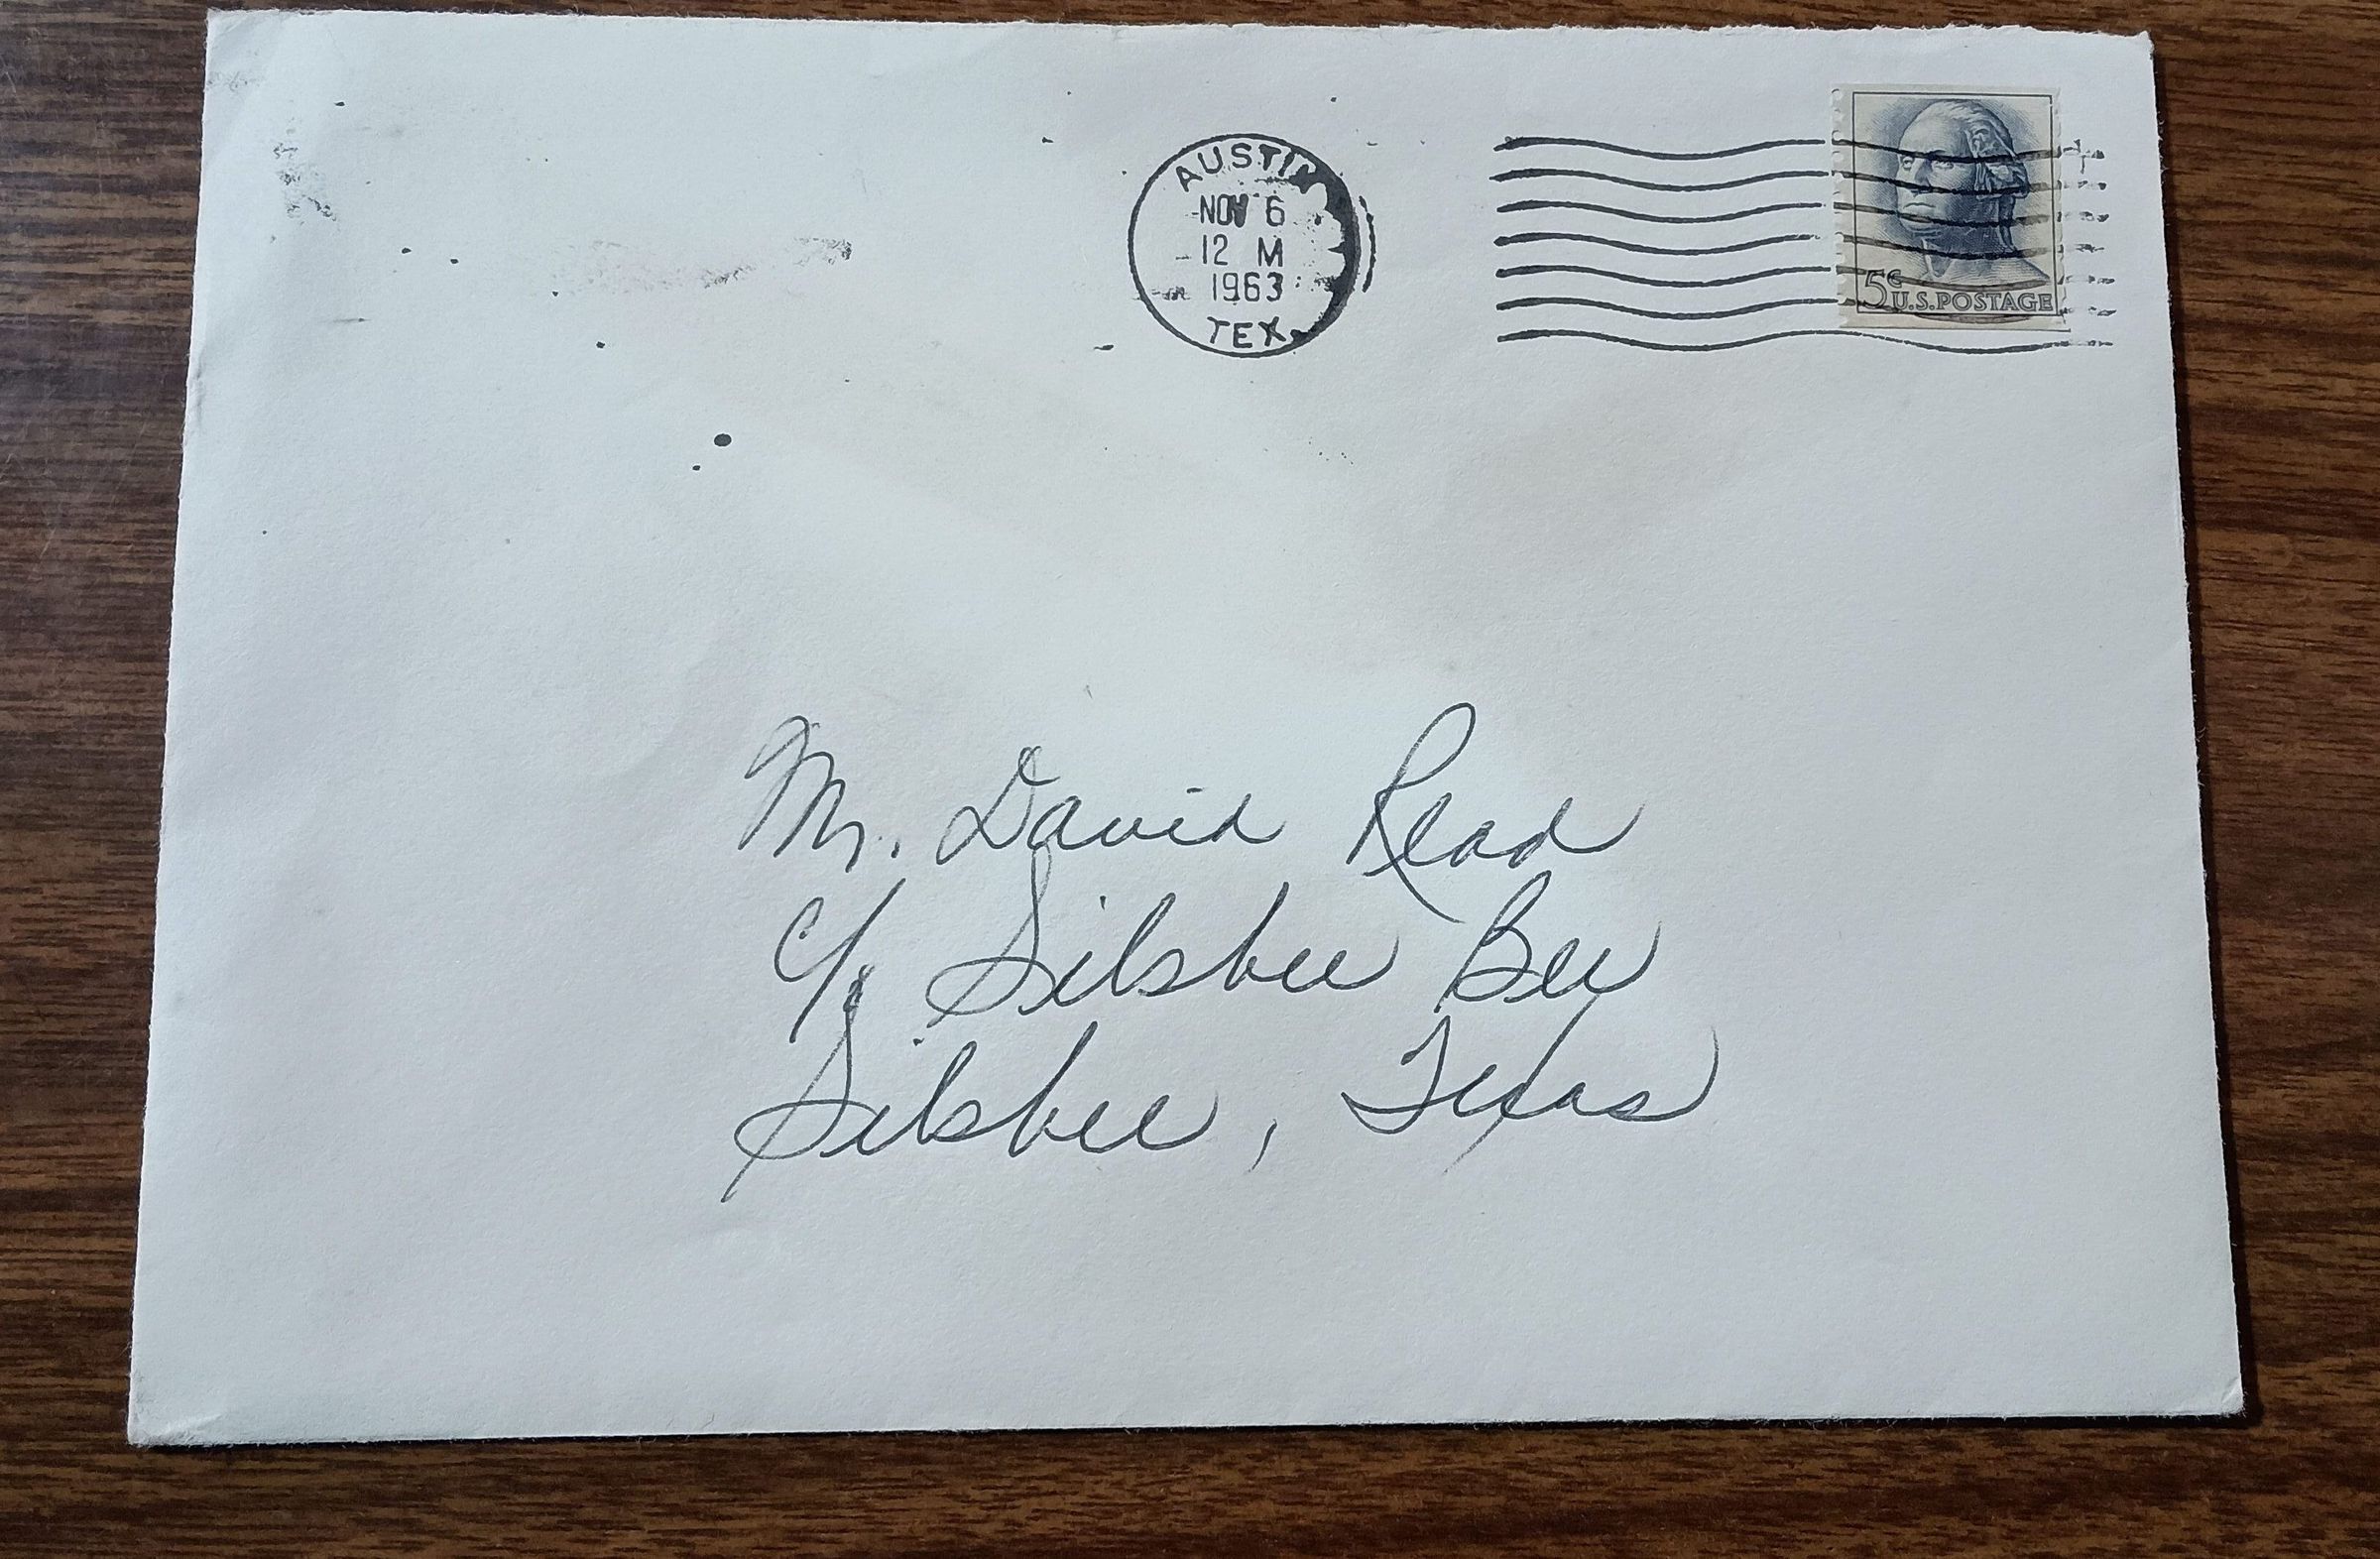 AUSTIN
NOV 6
12 M
1963
TEX.
5¢
U.S. POSTAGE
Mr. David Read
c/o Silsbee Bee
Silsbee, Texas